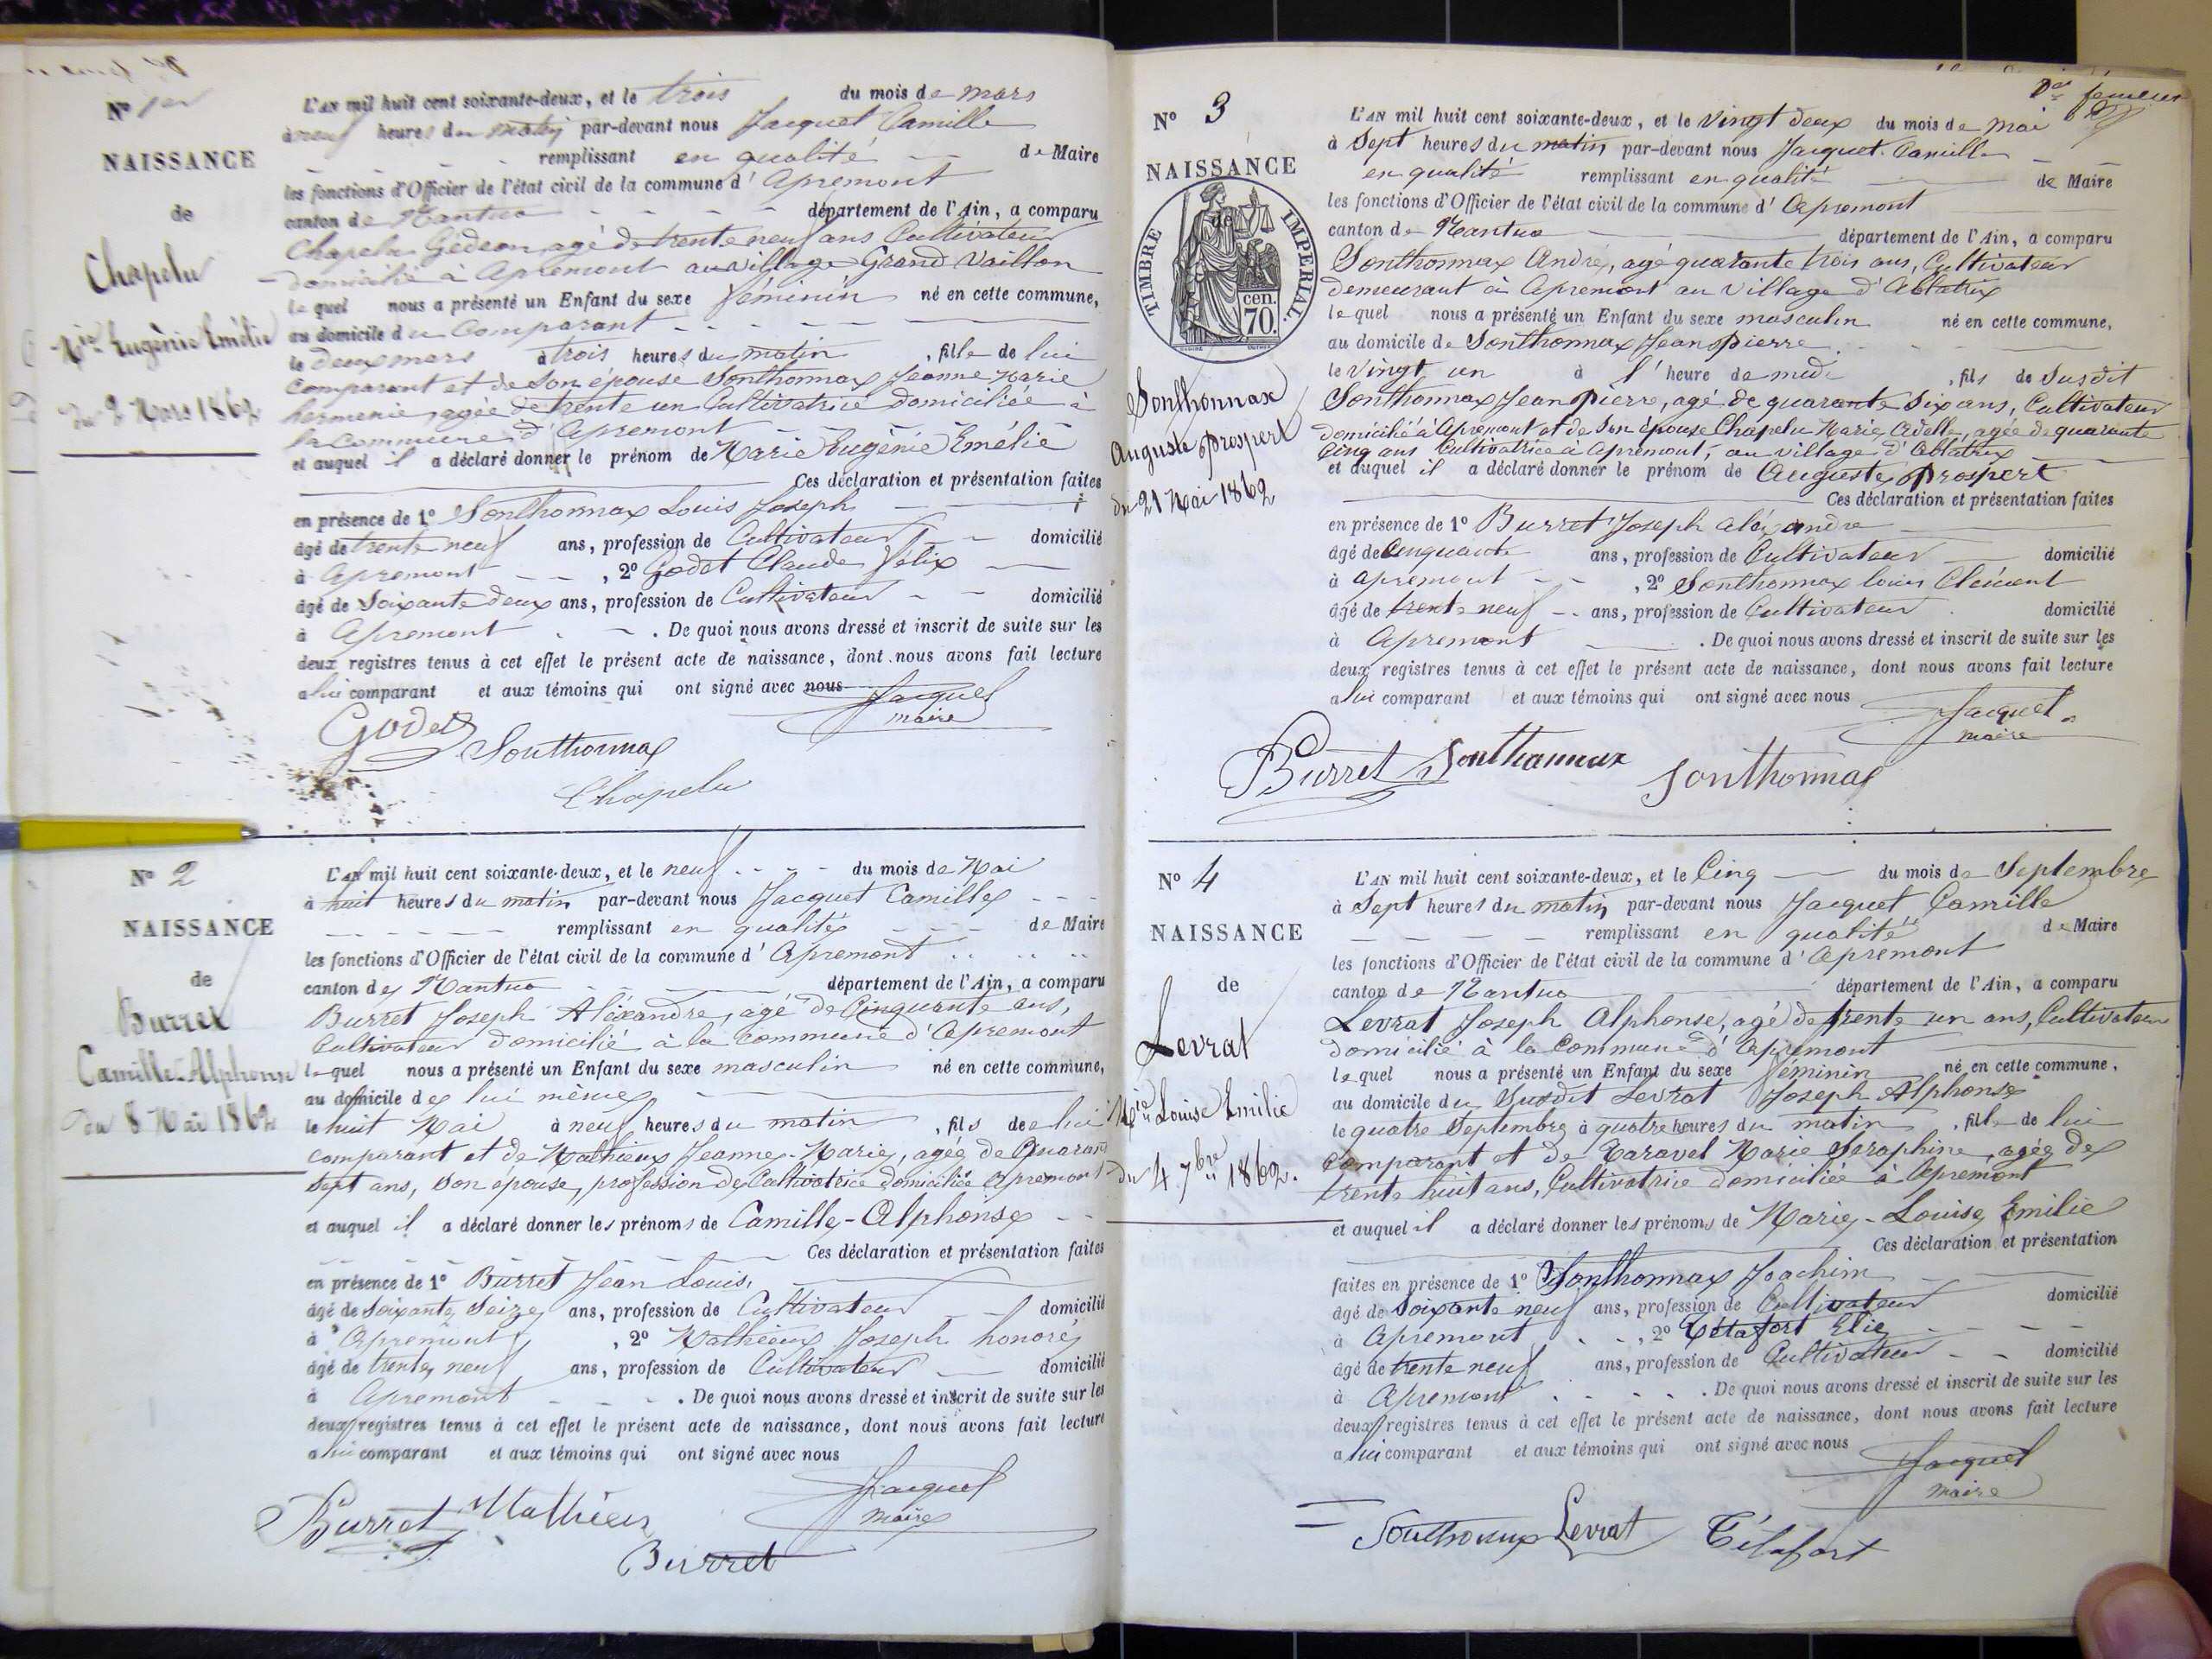 N° 1er
NAISSANCE
de
Chapelu
Mie Eugénie Emélie
du 2 Mars 1862
L'AN mil huit cent soixante-deux, et le trois du mois de mars
à neuf heures du matin par-devant nous Jacquet Camille
remplissant en qualité de Maire
les fonctions d'Officier de l'état civil de la commune d' Apremont
canton de Nantua département de l'Ain, a comparu
Chapelu Gédéon, agé de trente neuf ans Cultivateur
domicilié à Apremont au village Grand Vaillon
lequel nous a présenté un Enfant du sexe féminin né en cette commune,
au domicile du Comparant
le deux mars à trois heures du matin, fille de lui
Comparant et de son épouse Sonthonnax Jeanne Marie
hermenie, agée de trente un Cultivatrice domiciliée à
la commune d'Apremont
et auquel il a déclaré donner le prénom de Marie Eugénie Emélie
Ces déclaration et présentation faites
en présence de 1° Sonthonnax Louis Joseph
âgé de trente neuf ans, profession de Cultivateur domicilié
à Apremont, 2° Godet Claude Félix
âgé de Soixante deux ans, profession de Cultivateur domicilié
à Apremont. De quoi nous avons dressé et inscrit de suite sur les
deux registres tenus à cet effet le présent acte de naissance, dont nous avons fait lecture
a lui comparant et aux témoins qui ont signé avec nous
Jacquet
maire
Godet Sonthonnax
Chapelu
N° 2
NAISSANCE
de
Burret
Camille-Alphonse
du 8 Mai 1862
L'AN mil huit cent soixante-deux, et le neuf du mois de Mai
à huit heures du matin par-devant nous Jacquet Camille
remplissant en qualité de Maire
les fonctions d'Officier de l'état civil de la commune d' Apremont
canton de Nantua département de l'Ain, a comparu
Burret Joseph Aléxandre, agé de Cinquante ans,
Cultivateur domicilié à la commune d'Apremont
lequel nous a présenté un Enfant du sexe masculin né en cette commune,
au domicile de lui même
le huit Mai à neuf heures du matin, fils de lui
comparant et de Mathieux Jeanne-Marie, agée de Quarante
Sept ans, son épouse, profession de Cultivatrice domiciliée Apremont
et auquel il a déclaré donner les prénoms de Camille-Alphonse
Ces déclaration et présentation faites
en présence de 1° Burret Jean Louis,
âgé de Soixante Seize ans, profession de Cultivateur domicilié
à Apremont, 2° Mathieux Joseph honoré
âgé de trente neuf ans, profession de Cultivateur domicilié
à Apremont. De quoi nous avons dressé et inscrit de suite sur les
deux registres tenus à cet effet le présent acte de naissance, dont nous avons fait lecture
a lui comparant et aux témoins qui ont signé avec nous
Jacquet
maire
Burret Mathieu
Burret
N° 3
NAISSANCE
de
TIMBRE IMPERIAL.
70 cen.
Sonthonnax
Auguste Prospert
du 21 Mai 1862
L'AN mil huit cent soixante-deux, et le Vingt deux du mois de Mai
à Sept heures du matin par-devant nous Jacquet Camille
en qualité remplissant en qualité de Maire
les fonctions d'Officier de l'état civil de la commune d' Apremont
canton de Nantua département de l'Ain, a comparu
Sonthonnax André, agé quarante trois ans, Cultivateur
demeurant à Apremont au village d'Ablatrix
lequel nous a présenté un Enfant du sexe masculin né en cette commune,
au domicile de Sonthonnax Jean Pierre
le Vingt un à l'heure de midi, fils de Susdit
Sonthonnax Jean Pierre, agé de quarante six ans, Cultivateur
domicilié à Apremont et de son épouse Chapelu Marie Adelle, agée de quarante
Cinq ans Cultivatrice à Apremont, au village d'Ablatrix
et auquel il a déclaré donner le prénom de Auguste Prospert
Ces déclaration et présentation faites
en présence de 1° Burret Joseph aléxandre
âgé de Cinquante ans, profession de Cultivateur domicilié
à Apremont, 2° Sonthonnax louis Clément
âgé de trente neuf ans, profession de Cultivateur domicilié
à Apremont. De quoi nous avons dressé et inscrit de suite sur les
deux registres tenus à cet effet le présent acte de naissance, dont nous avons fait lecture
a lui comparant et aux témoins qui ont signé avec nous
Jacquet
maire
Burret Sonthannax Sonthonnax
N° 4
NAISSANCE
de
Levrat
Mie Louise Emilie
du 4 7bre 1862.
L'AN mil huit cent soixante-deux, et le Cinq du mois de Septembre
à Sept heures du matin par-devant nous Jacquet Camille
remplissant en qualité de Maire
les fonctions d'Officier de l'état civil de la commune d' Apremont
canton de Nantua département de l'Ain, a comparu
Levrat Joseph Alphonse, agé de trente un ans, Cultivateur
domicilié à la Commune d'Apremont
lequel nous a présenté un Enfant du sexe féminin né en cette commune,
au domicile du Susdit Levrat Joseph Alphonse
le quatre Septembre à quatre heures du matin, fille de lui
Comparant et de Caravel Marie Séraphine, agée de
trente huit ans, Cultivatrice domiciliée à Apremont
et auquel il a déclaré donner les prénoms de Marie-Louise Emilie
Ces déclaration et présentation
faites en présence de 1° Sonthonnax Joachim
âgé de Soixante neuf ans, profession de Cultivateur domicilié
à Apremont, 2° Tétafort Elie
âgé de trente neuf ans, profession de Cultivateur domicilié
à Apremont. De quoi nous avons dressé et inscrit de suite sur les
deux registres tenus à cet effet le présent acte de naissance, dont nous avons fait lecture
a lui comparant et aux témoins qui ont signé avec nous
Jacquet
maire
Sonthonnax Levrat Tétafort